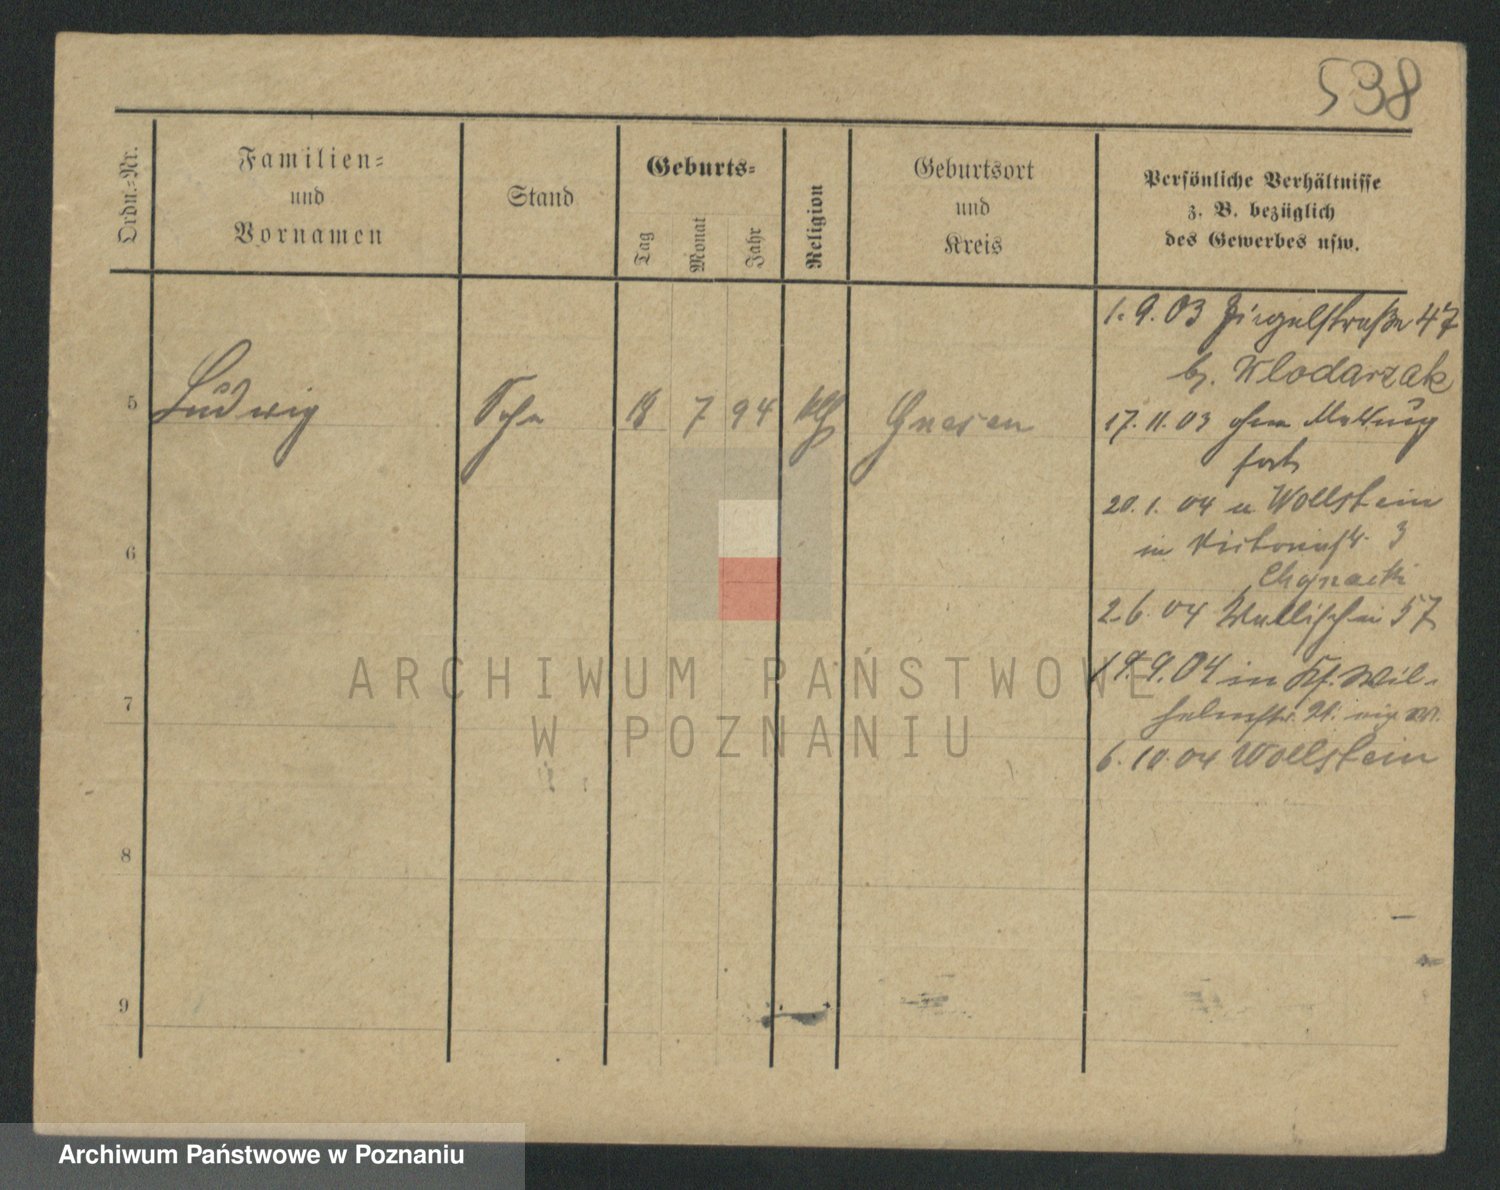 538
Ordn.=Nr.
Familien=
und
Vornamen
Stand
Geburts=
Tag
Monat
Jahr
Religion
Geburtsort
und
Kreis
Persönliche Verhältnisse
z. B. bezüglich
des Gewerbes usw.
1. 9. 03 Ziegelstraße 47
b. Wlodarzak
5 Ludwig Sohn 18 7 94 Gnesen
17. 11. 03 ohne Meldung
fort
20. 1. 04 Wollstein
in Victoriastr. 3
Chojnacki
2. 6. 04 Wallischei 57
19. 9. 04 in Kf. Wil-
helmstr.
6. 10. 04 Wollstein
6
7
8
9
ARCHIWUM PAŃSTWOWE
W POZNANIU
Archiwum Państwowe w Poznaniu